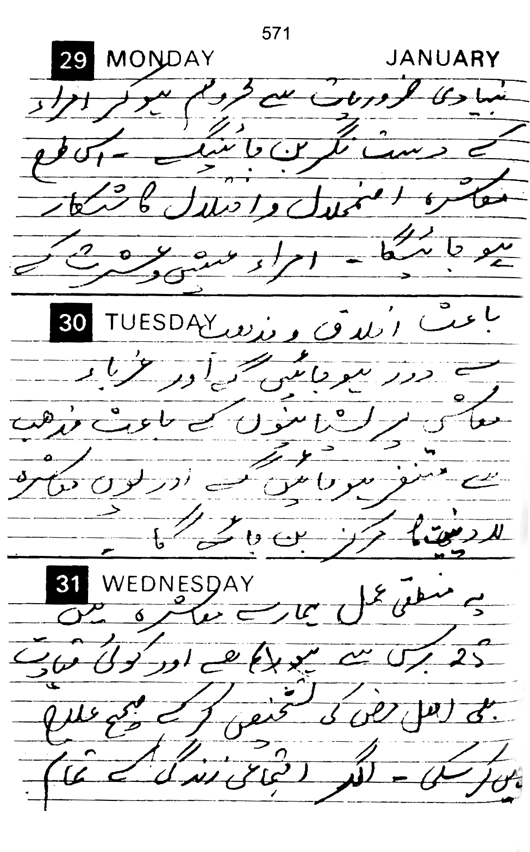 571
29 MONDAY JANUARY
بنیادی ضروریات سے محروم ہو کر امراء
کے دست نگر بن جائینگے - اسی طرح
معاشرہ اضمحلال و اختلال کا شکار
ہو جائیگا - امراء عیش و عشرت کے
30 TUESDAY باعث اخلاق و مذہب
سے دور ہو جائیں گے اور غرباء
معاشی پریشانیوں کے باعث مذھب
سے متنفر ہو جائیں گے اور یوں معاشرہ
لادینیت کا مرکز بن جائے گا -
31 WEDNESDAY یہ منطقی عمل ہمارے معاشرہ میں
25 برس سے ہو رہا ھے اور کوئی قیادت
بھی اصل مرض کی تشخیص کر کے صحیح علاج
نہیں کر سکی - اگر اجتماعی زندگی کے تمام